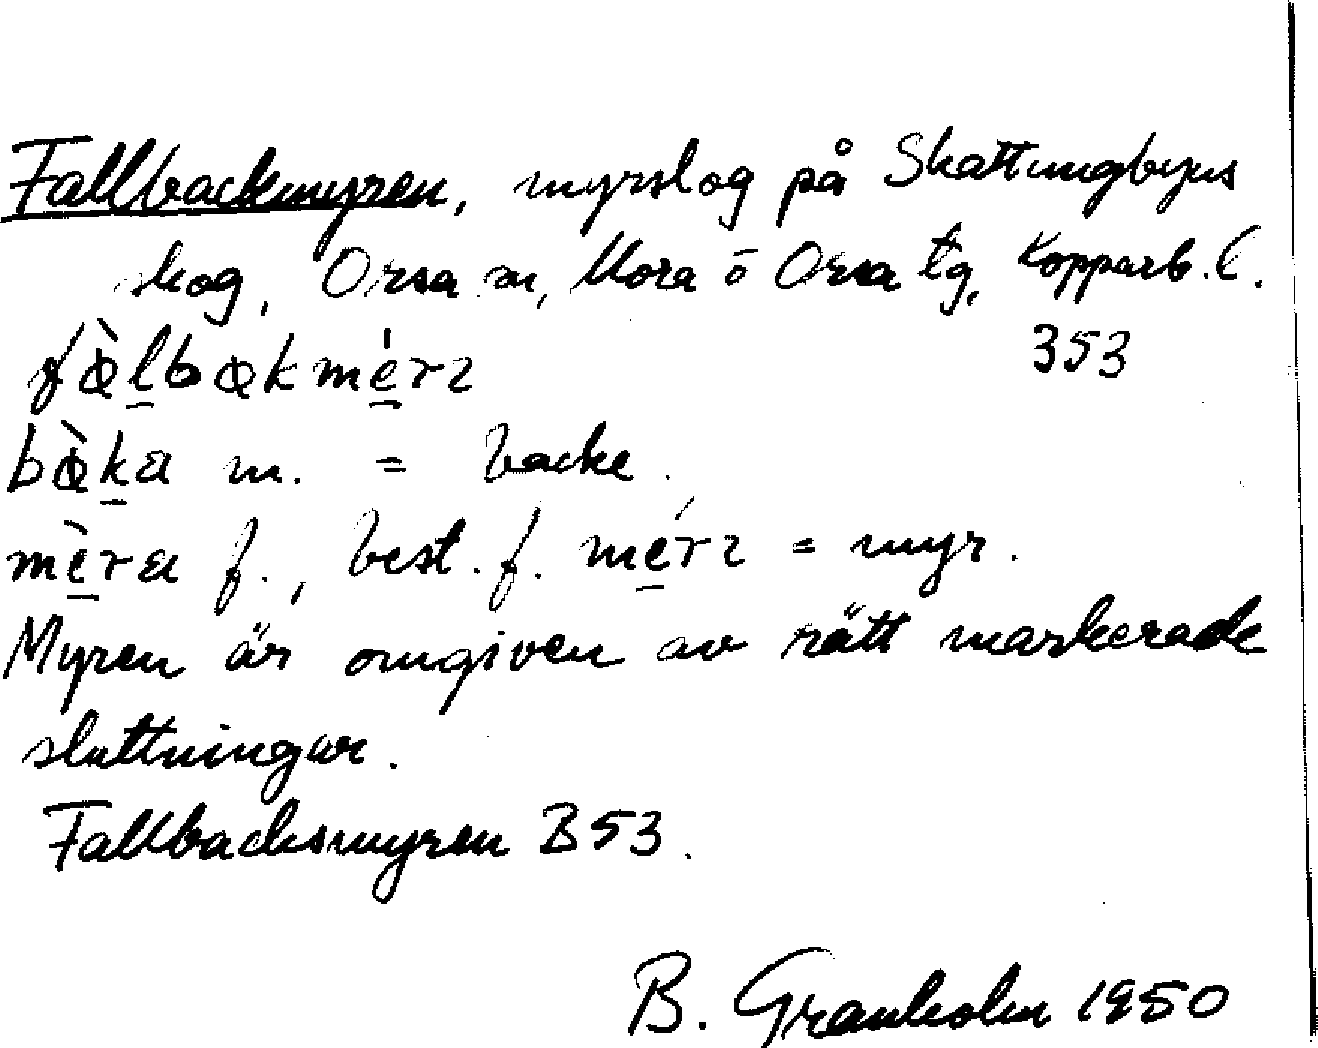 Fallbackmyren, myrslog på Skattungbyns
skog, Orsa sn, Mora o Orsa tg, Kopparb. l.
353
fàlbakmérɩ
bàka m. = backe.
mèra f., best. f. mérɩ = myr.
Myren är omgiven av rätt markerade
sluttningar.
Fallbacksmyren B53.
B. Granholm 1950